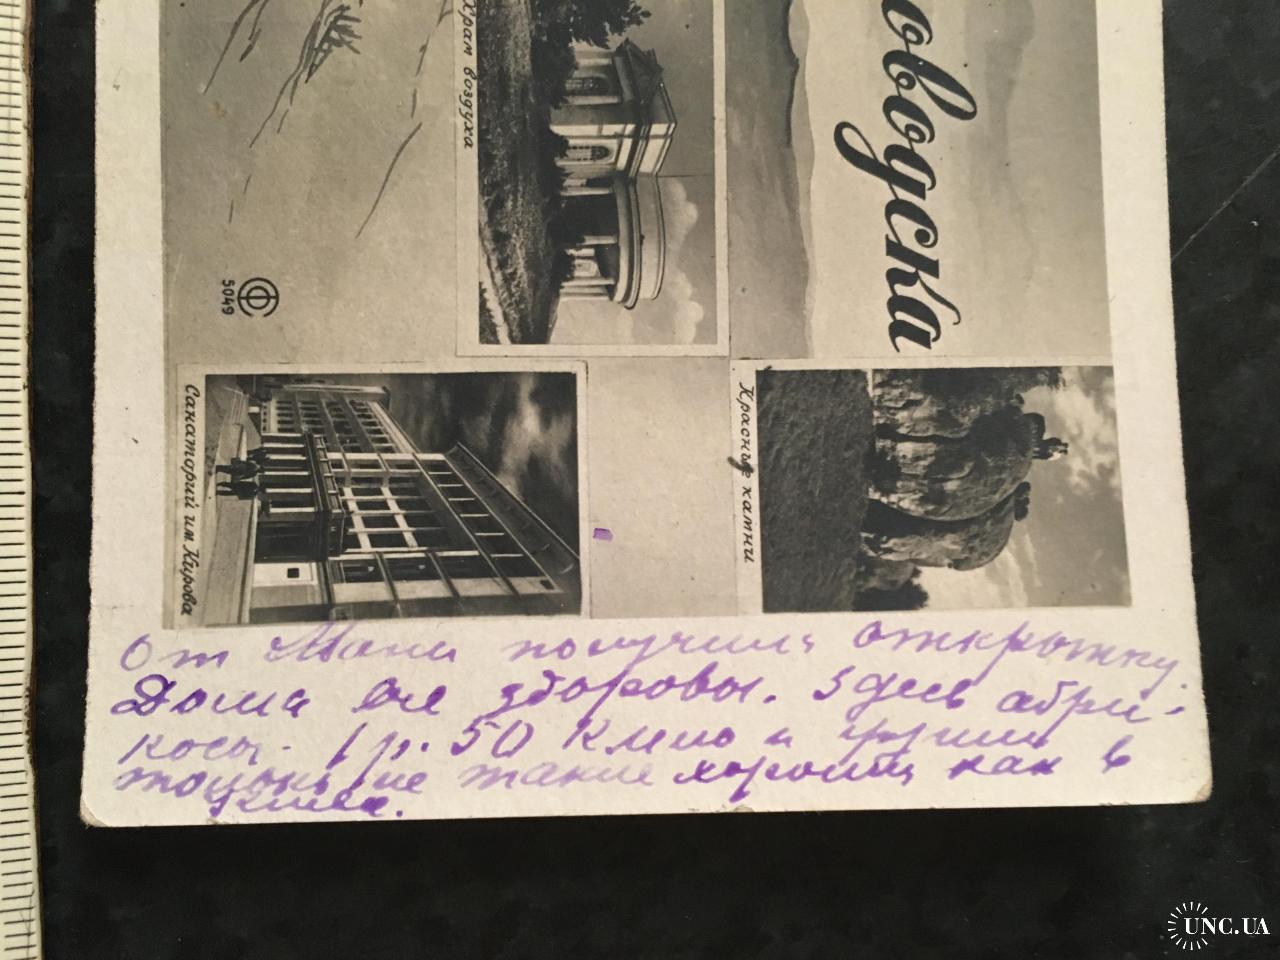 Храм воздуха
оводска
5049
Санаторий им Кирова
Красные камни
От Мани получил открытку.
Дома все здоровы. Здесь абри-
косы. 1 р. 50 кило и груши
не такие хорошие как в
UNC.UA